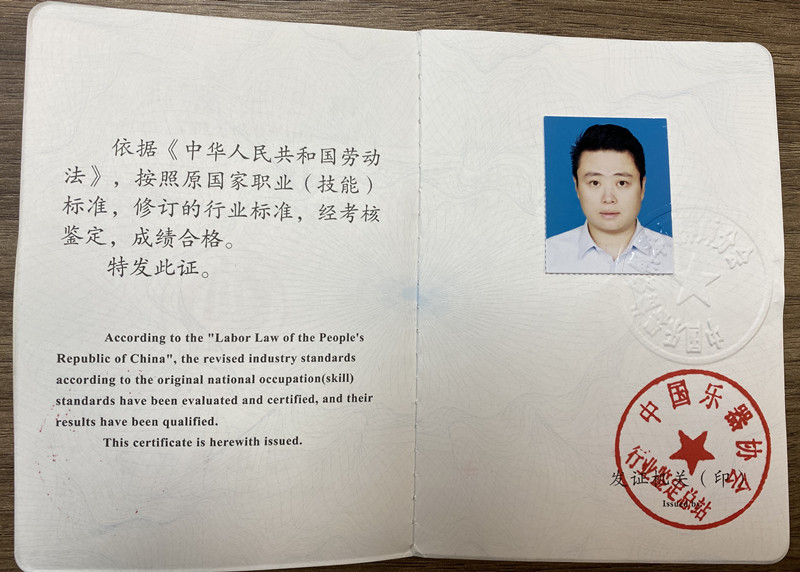 依据《中华人民共和国劳动
法》，按照原国家职业（技能）
标准，修订的行业标准，经考核
鉴定，成绩合格。
特发此证。
According to the "Labor Law of the People's
Republic of China", the revised industry standards
according to the original national occupation(skill)
standards have been evaluated and certified, and their
results have been qualified.
This certificate is herewith issued.
中国乐器协会
行业鉴定总站
发证机关（印）
Issued by